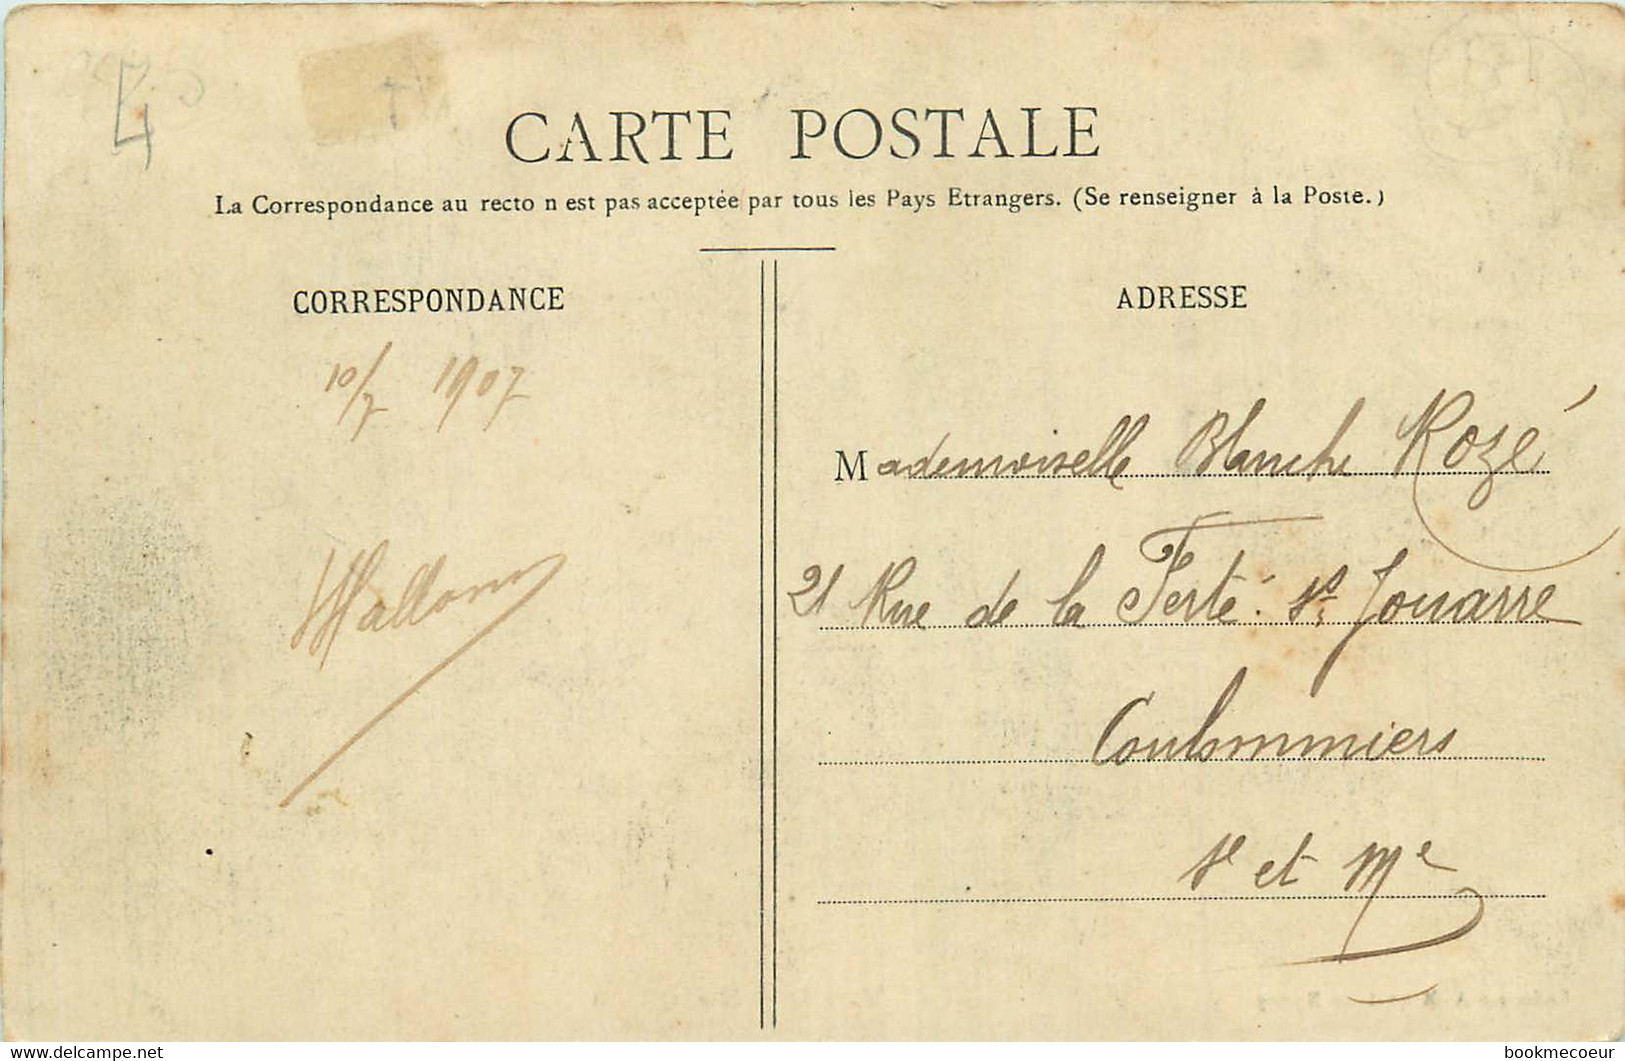 4
CARTE POSTALE
La Correspondance au recto n est pas acceptée par tous les Pays Etrangers. (Se renseigner à la Poste.)
CORRESPONDANCE
ADRESSE
10/7 1907
Mademoiselle Blanche Rozé
21 Rue de la Ferté. s/s Jouarre
Coulommiers
Se et Me
www.delcampe.net
bookmecoeur